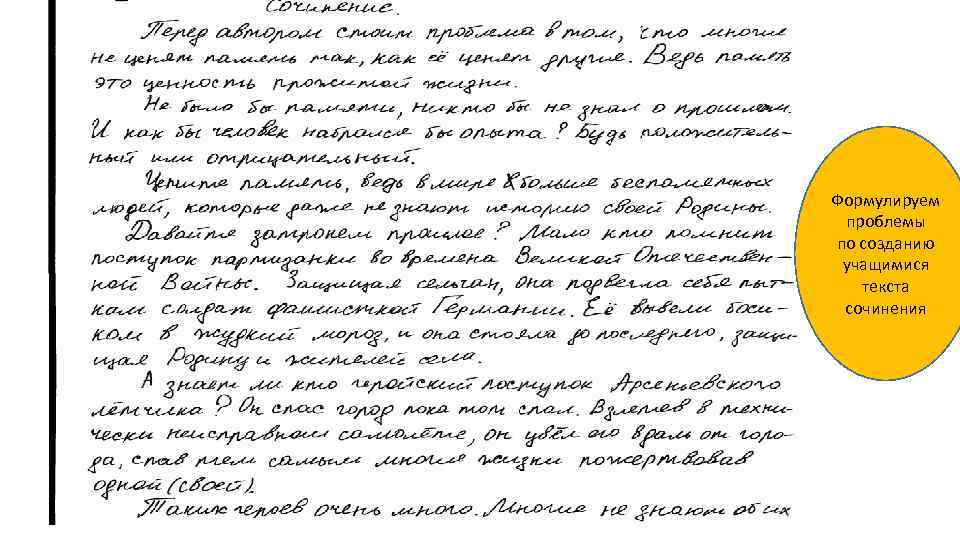 Сочинение.
Перед автором стоит проблема в том, что многие
не ценят память так, как её ценят другие. Ведь память
это ценность прожитой жизни.
Не было бы памяти, никто бы не знал о прошлом.
И как бы человек набрался бы опыта? Будь положитель-
ный или отрицательный.
Цените память, ведь в мире больше беспаметных
людей, которые даже не знают историю своей Родины.
Давайте затронем прошлое? Мало кто помнит
поступок партизанки во времена Великой Отечествен-
ной Войны. Защищая сельчан, она подвергла себя пыт-
кам солдат фашисткой Германии. Её вывели боси-
ком в жудкий мороз, и она стояла до последнего, защи-
щая Родину и жителей села.
А знает ли кто геройский поступок Арсеньевского
лётчика? Он спас город пока тот спал. Взлетев в техни-
чески неисправном самолёте, он увёл его вдаль от горо-
да, спав тем самым многие жизни пожертвовав
одной (своей).
Таких героев очень много. Многие не знают об их
Формулируем
проблемы
по созданию
учащимися
текста
сочинения